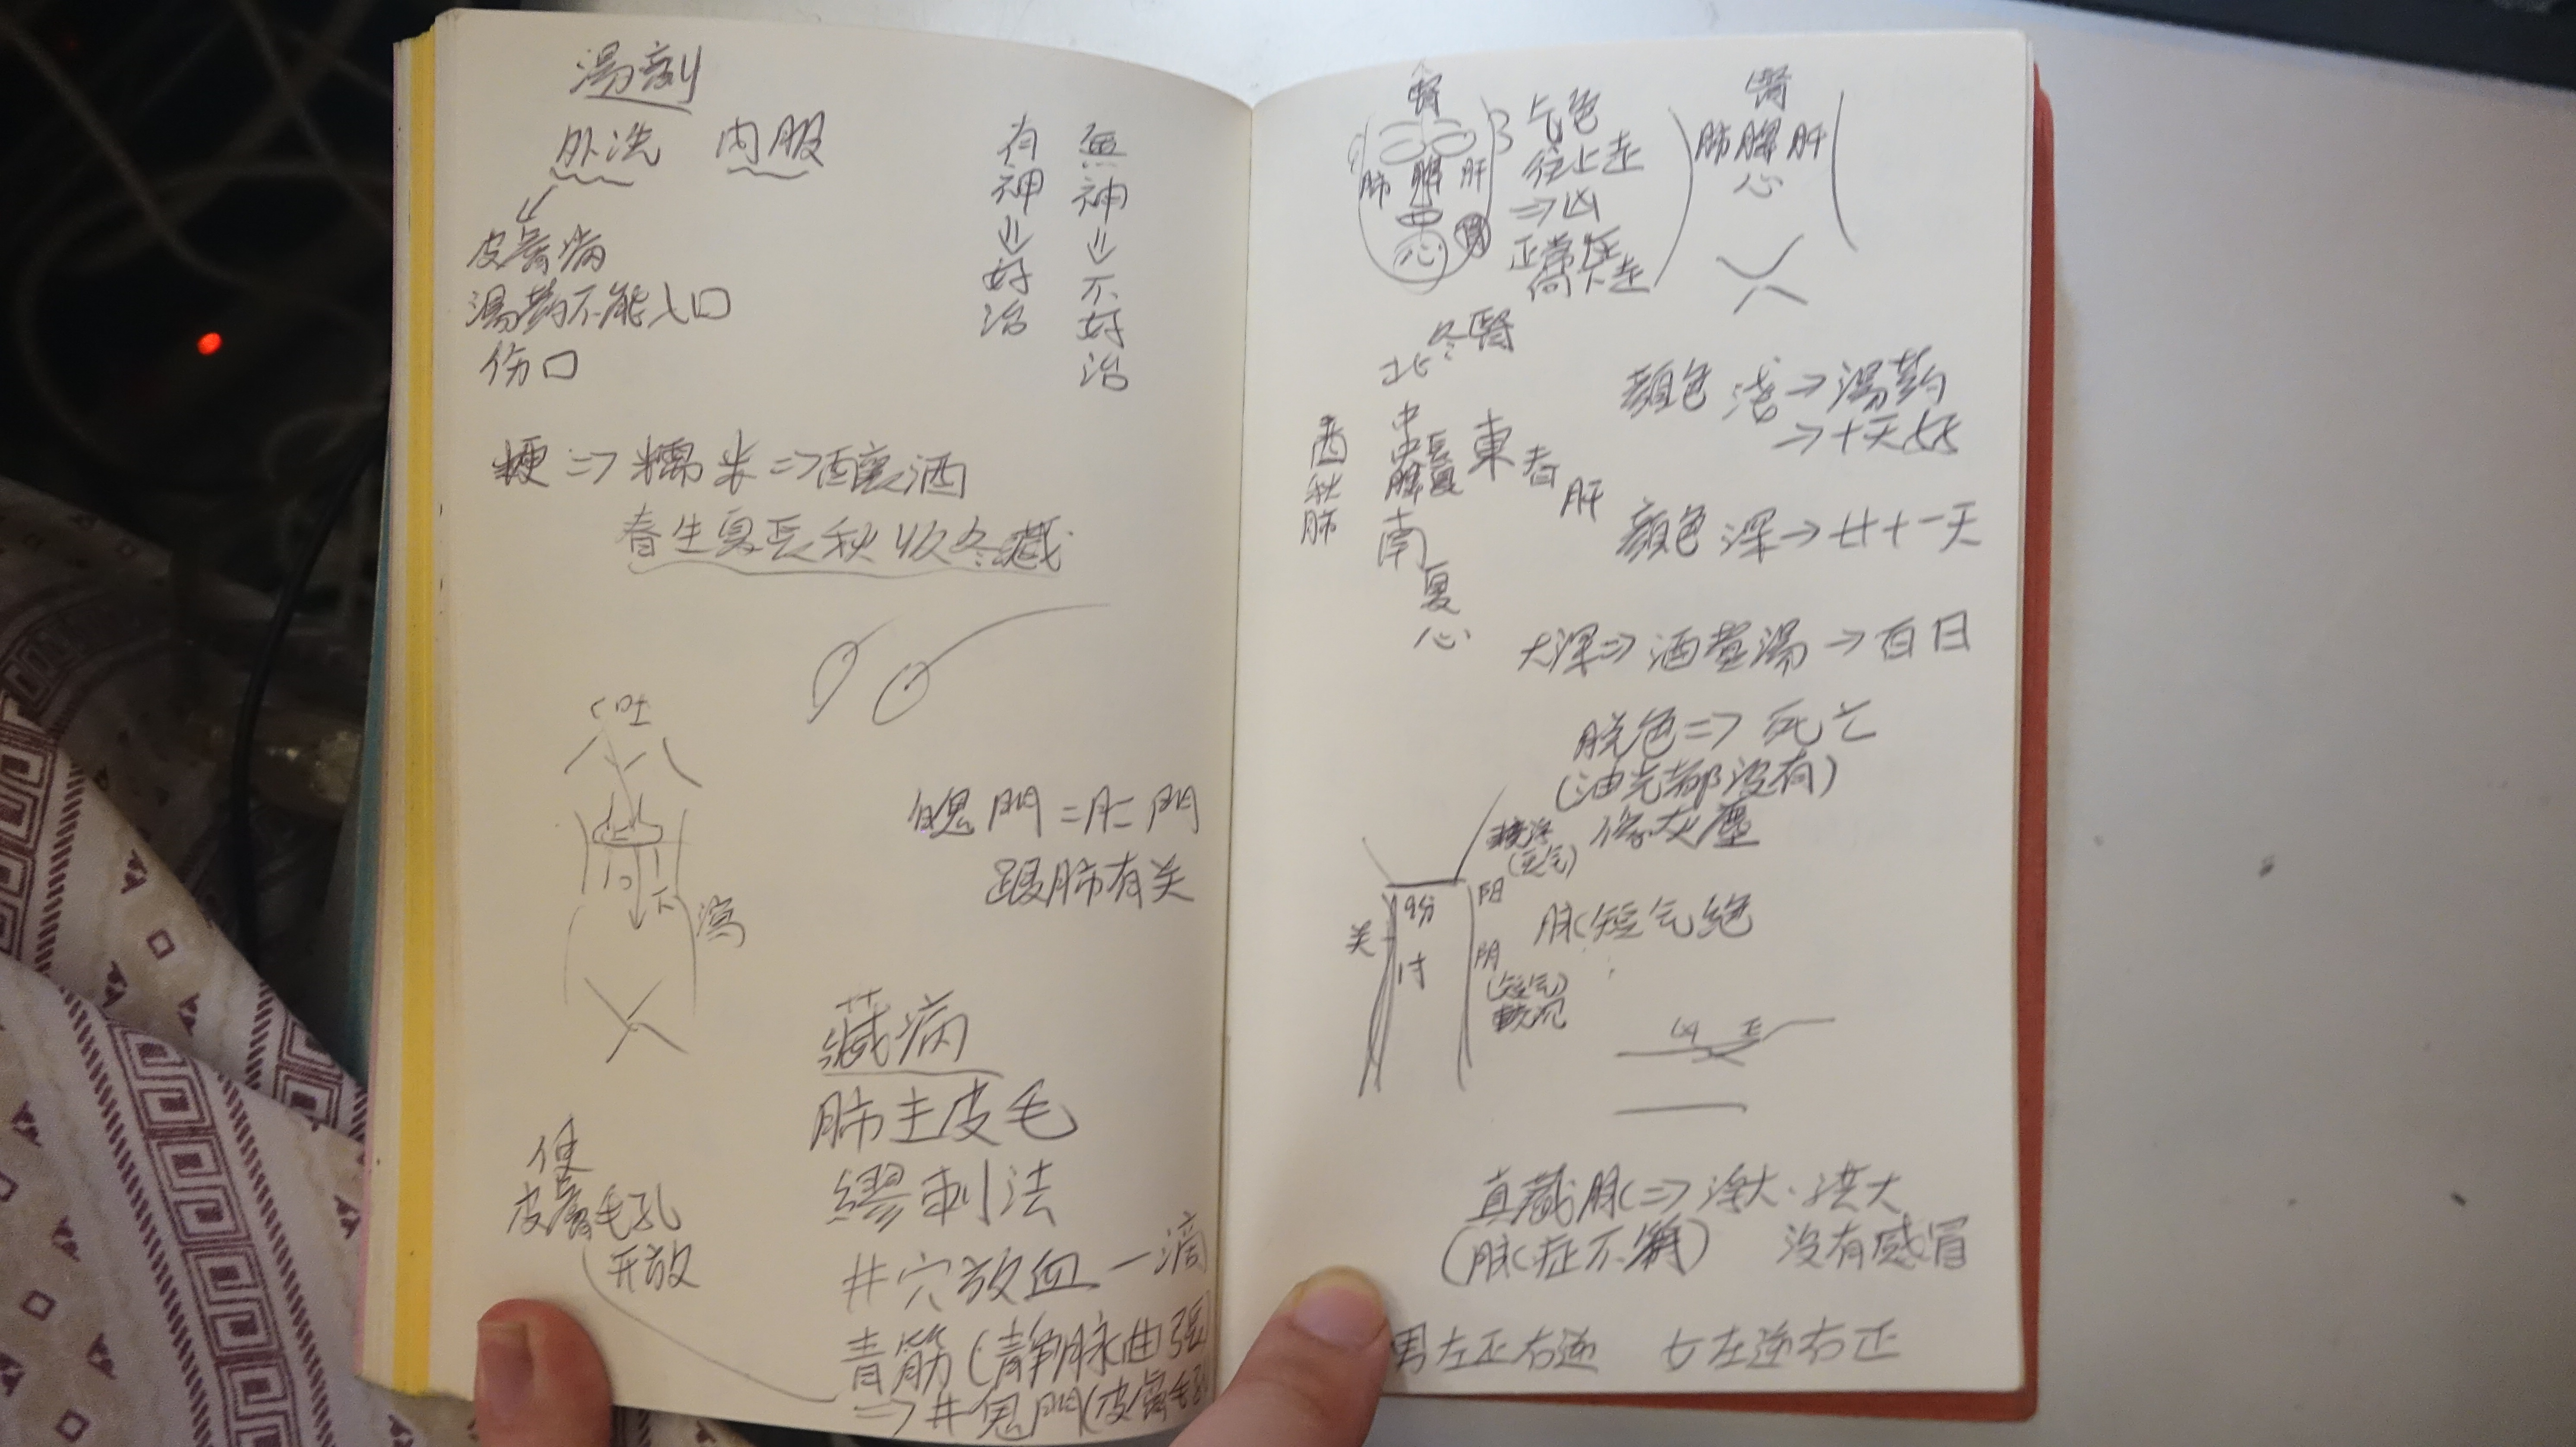 湯剤
外洗 内服
皮膚病
湯药不能入口
伤口
無神⇒不好治
有神⇒好治
粳⇒糯米⇒酿酒
春生夏長秋收冬藏
吐
下
瀉
魄門=肛門
跟肺有关
藏病
肺主皮毛
繆刺法
井穴放血一滴
青筋(静脉曲張
⇒井鬼門(皮膚毛孔
使
皮膚毛孔
开放
腎
肺 脾 肝
心
气色
往上走
⇒凶
正常
向下走
腎
肺脾肝
心
北冬腎
西秋肺
中央脾長夏
東春肝
南夏心
顏色 浅→湯药
→十天
顏色 深→廿十一天
大深⇒酒煮湯→百日
脱色⇒死亡
(油光都没有)
像灰塵
关
9分
1寸
阳
阴
(短气)
脉短气绝
真藏脉⇒浮大·洪大
(脉症不符) 没有感冒
男左正右逆 女左逆右正